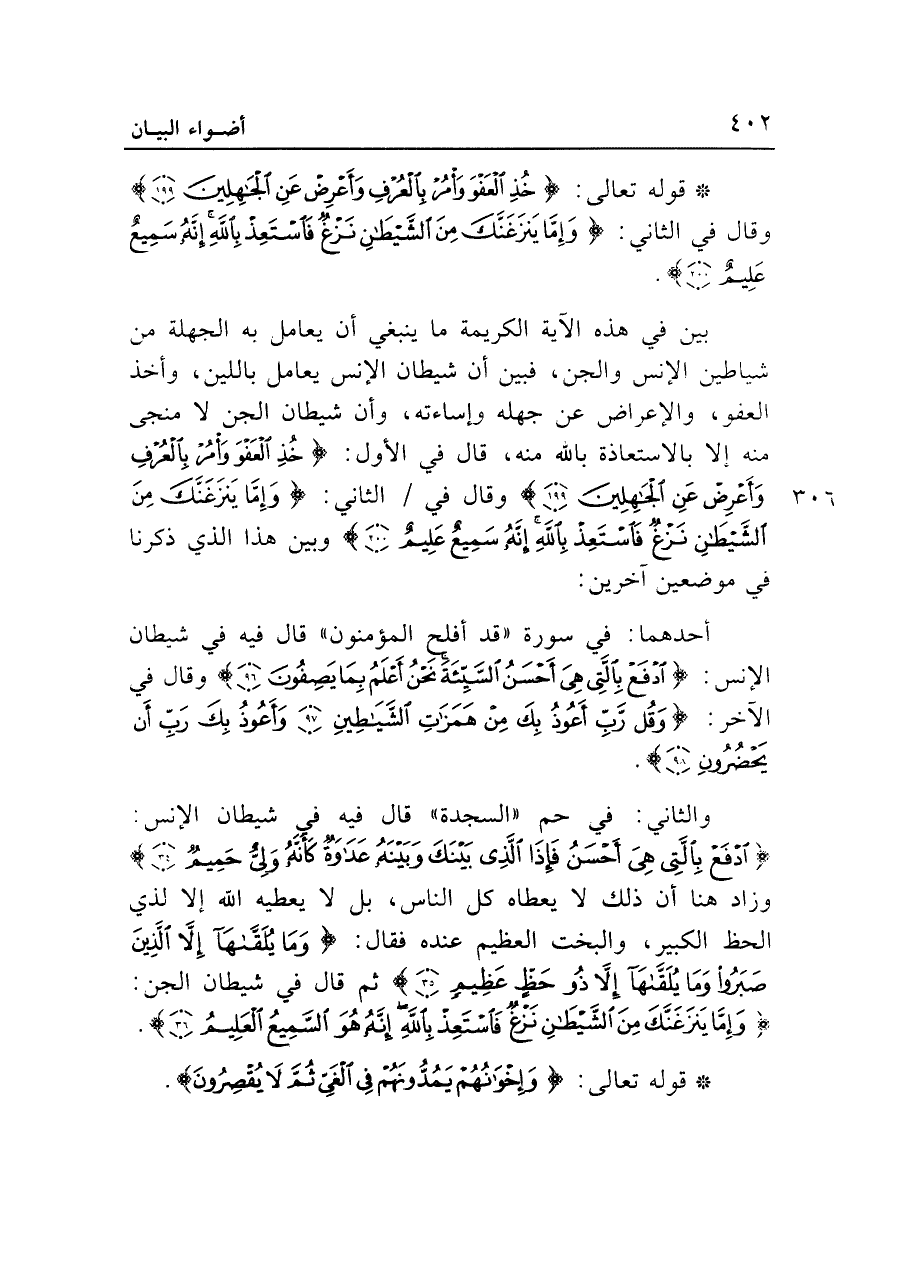 ٤٠٢ أضواء البيان
* قوله تعالى: ﴿ خُذِ ٱلْعَفْوَ وَأْمُرْ بِٱلْعُرْفِ وَأَعْرِضْ عَنِ ٱلْجَٰهِلِينَ ١٩٩ ﴾
وقال في الثاني: ﴿ وَإِمَّا يَنزَغَنَّكَ مِنَ ٱلشَّيْطَٰنِ نَزْغٌ فَٱسْتَعِذْ بِٱللَّهِۚ إِنَّهُۥ سَمِيعٌ
عَلِيمٌ ٢٠٠ ﴾.
بين في هذه الآية الكريمة ما ينبغي أن يعامل به الجهلة من
شياطين الإنس والجن، فبين أن شيطان الإنس يعامل باللين، وأخذ
العفو، والإعراض عن جهله وإساءته، وأن شيطان الجن لا منجى
منه إلا بالاستعاذة بالله منه، قال في الأول: ﴿ خُذِ ٱلْعَفْوَ وَأْمُرْ بِٱلْعُرْفِ
وَأَعْرِضْ عَنِ ٱلْجَٰهِلِينَ ١٩٩ ﴾ وقال في / الثاني: ﴿ وَإِمَّا يَنزَغَنَّكَ مِنَ ٣٠٦
ٱلشَّيْطَٰنِ نَزْغٌ فَٱسْتَعِذْ بِٱللَّهِۚ إِنَّهُۥ سَمِيعٌ عَلِيمٌ ٢٠٠ ﴾ وبين هذا الذي ذكرنا
في موضعين آخرين:
أحدهما: في سورة «قد أفلح المؤمنون» قال فيه في شيطان
الإنس: ﴿ ٱدْفَعْ بِٱلَّتِي هِيَ أَحْسَنُ ٱلسَّيِّئَةَۚ نَحْنُ أَعْلَمُ بِمَا يَصِفُونَ ٩٦ ﴾ وقال في
الآخر: ﴿ وَقُل رَّبِّ أَعُوذُ بِكَ مِنْ هَمَزَٰتِ ٱلشَّيَٰطِينِ ٩٧ وَأَعُوذُ بِكَ رَبِّ أَن
يَحْضُرُونِ ٩٨ ﴾.
والثاني: في حم «السجدة» قال فيه في شيطان الإنس:
﴿ ٱدْفَعْ بِٱلَّتِي هِيَ أَحْسَنُ فَإِذَا ٱلَّذِي بَيْنَكَ وَبَيْنَهُۥ عَدَٰوَةٌ كَأَنَّهُۥ وَلِيٌّ حَمِيمٌ ٣٤ ﴾
وزاد هنا أن ذلك لا يعطاه كل الناس، بل لا يعطيه الله إلا لذي
الحظ الكبير، والبخت العظيم عنده فقال: ﴿ وَمَا يُلَقَّىٰهَآ إِلَّا ٱلَّذِينَ
صَبَرُوا۟ وَمَا يُلَقَّىٰهَآ إِلَّا ذُو حَظٍّ عَظِيمٍ ٣٥ ﴾ ثم قال في شيطان الجن:
﴿ وَإِمَّا يَنزَغَنَّكَ مِنَ ٱلشَّيْطَٰنِ نَزْغٌ فَٱسْتَعِذْ بِٱللَّهِۖ إِنَّهُۥ هُوَ ٱلسَّمِيعُ ٱلْعَلِيمُ ٣٦ ﴾.
* قوله تعالى: ﴿ وَإِخْوَٰنُهُمْ يَمُدُّونَهُمْ فِي ٱلْغَيِّ ثُمَّ لَا يُقْصِرُونَ ﴾.